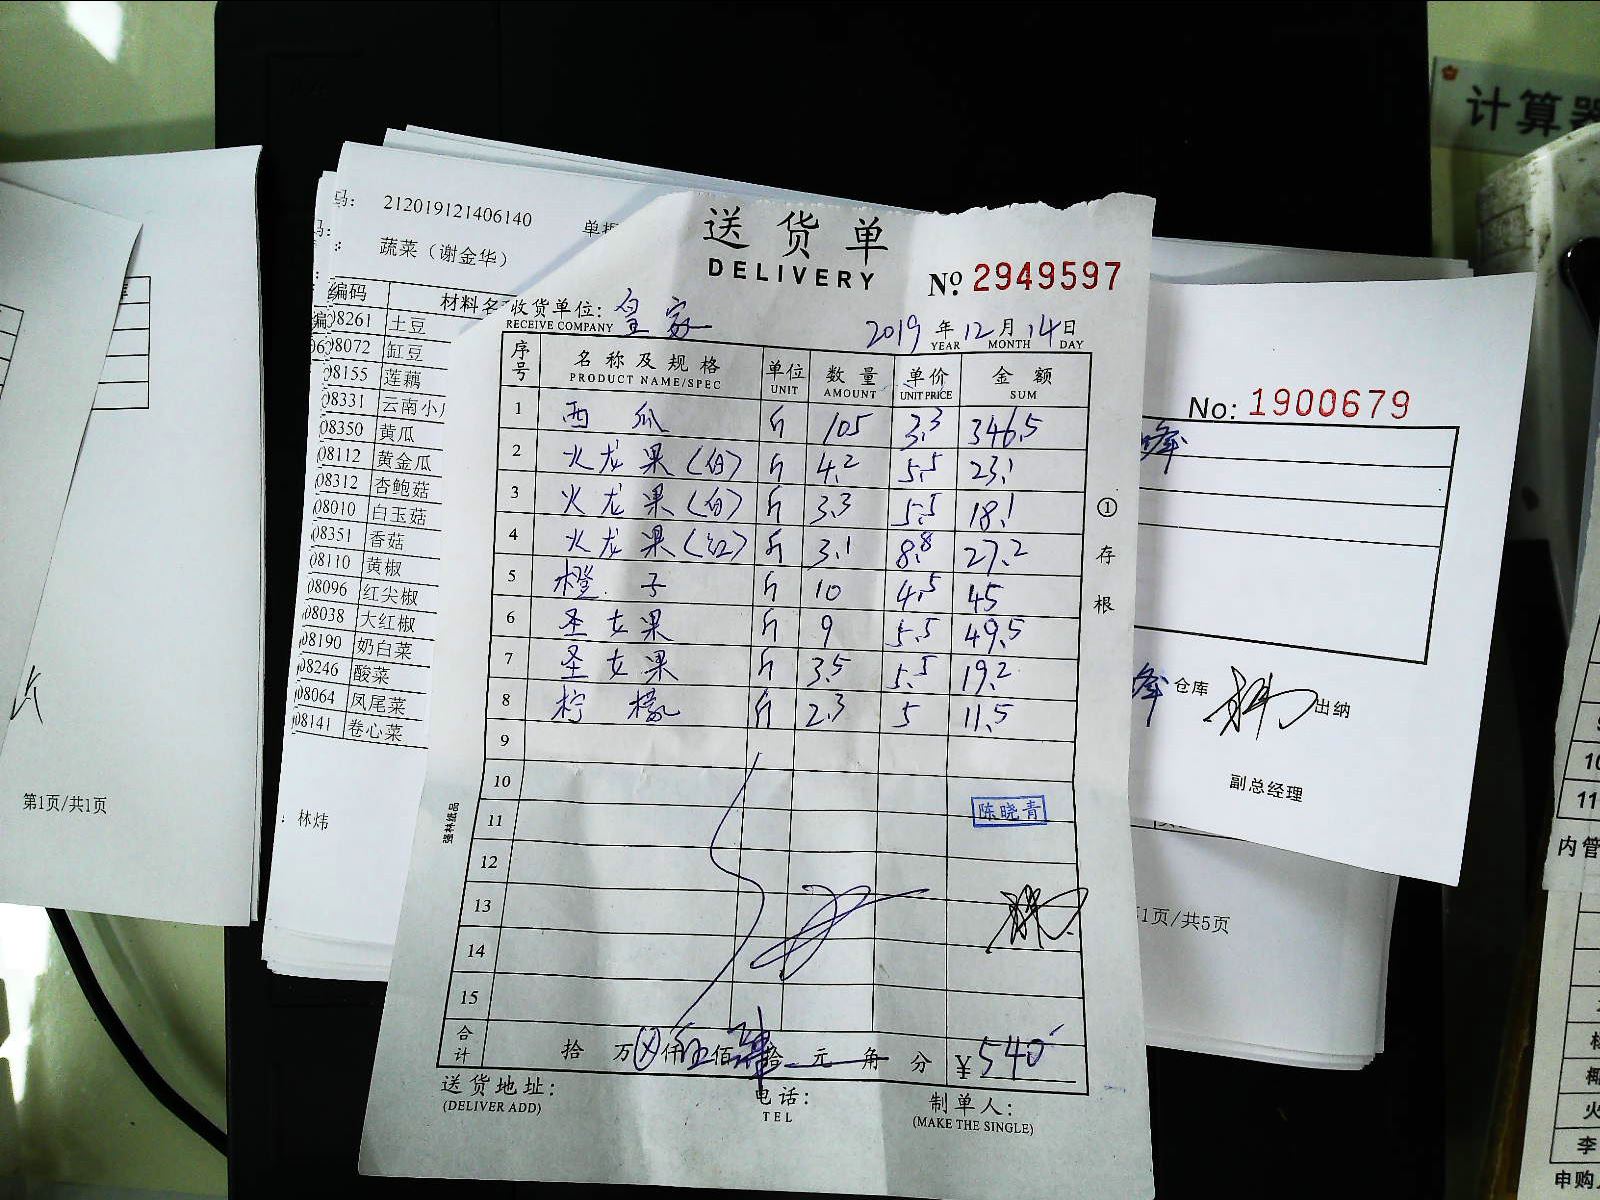 计算器
码: 212019121406140 单据
蔬菜（谢金华）
编码 材料名
08261 土豆
08072 缸豆
08155 莲藕
08331 云南小
08350 黄瓜
08112 黄金瓜
08312 杏鲍菇
08010 白玉菇
08351 香菇
08110 黄椒
08096 红尖椒
08038 大红椒
08190 奶白菜
08246 酸菜
08064 凤尾菜
08141 卷心菜
: 林炜
第1页/共1页
送货单
DELIVERY
No. 2949597
收货单位: 皇家
RECEIVE COMPANY
2019 年 12 月 14 日
YEAR MONTH DAY
序号 名称及规格 单位 数量 单价 金额
PRODUCT NAME/SPEC UNIT AMOUNT UNIT PRICE SUM
1 西瓜 斤 105 3.3 346.5
2 火龙果(白) 斤 4.2 5.5 23.1
3 火龙果(白) 斤 3.3 5.5 18.1
4 火龙果(红) 斤 3.1 8.8 27.2
5 橙子 斤 10 4.5 45
6 圣女果 斤 9 5.5 49.5
7 圣女果 斤 3.5 5.5 19.2
8 柠檬 斤 2.3 5 11.5
9
10
11
12
13
14
15
陈晓青
合计 拾 万 仟 伍 佰 肆 拾 元 角 分 ¥540
送货地址:
(DELIVER ADD)
电话:
TEL
制单人:
(MAKE THE SINGLE)
①存根
强林纸品
No: 1900679
仓库
出纳
副总经理
1页/共5页
10
11
内管
火
李
申购